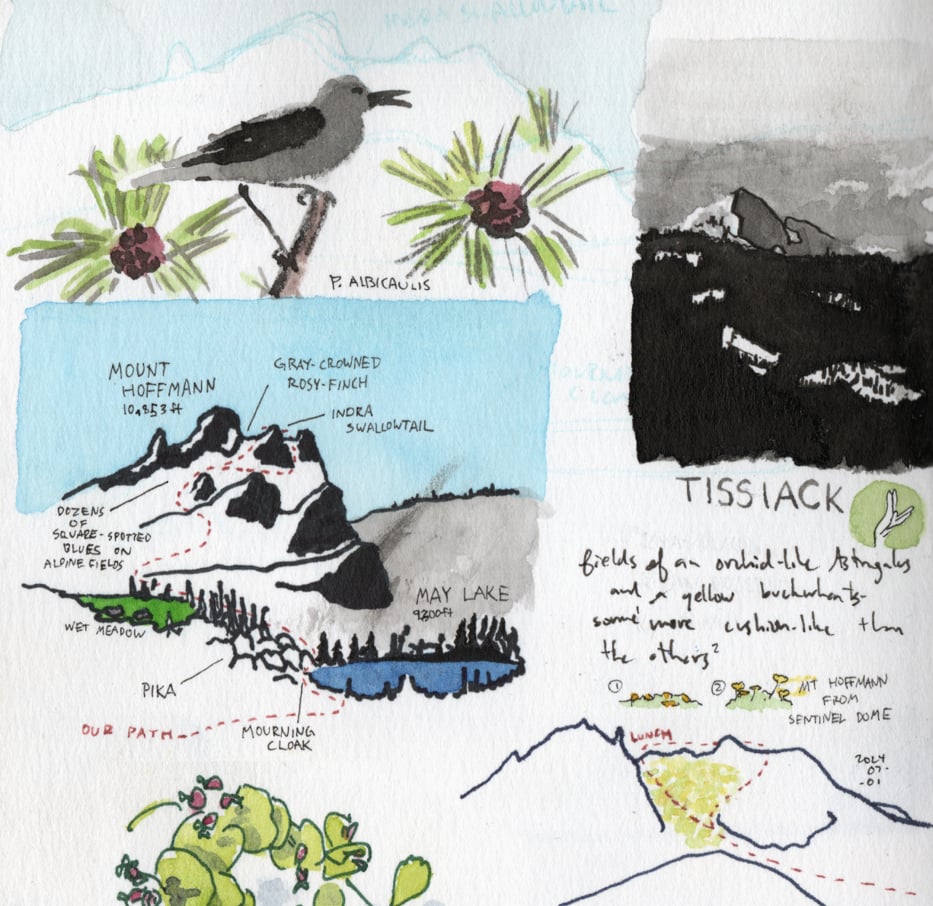 P. ALBICAULIS
MOUNT
HOFFMANN
10,853 ft
GRAY-CROWNED
ROSY-FINCH
INDRA
SWALLOWTAIL
DOZENS
OF
SQUARE-SPOTTED
BLUES ON
ALPINE FIELDS
WET MEADOW
MAY LAKE
9300ft
PIKA
OUR PATH
MOURNING
CLOAK
TISSIACK
fields of an orchid-like Astragalus
and yellow buckwheats-
some more cushion-like than
the others?
① ②
MT HOFFMANN
FROM
SENTINEL DOME
LUNCH
2024
-07-
-01